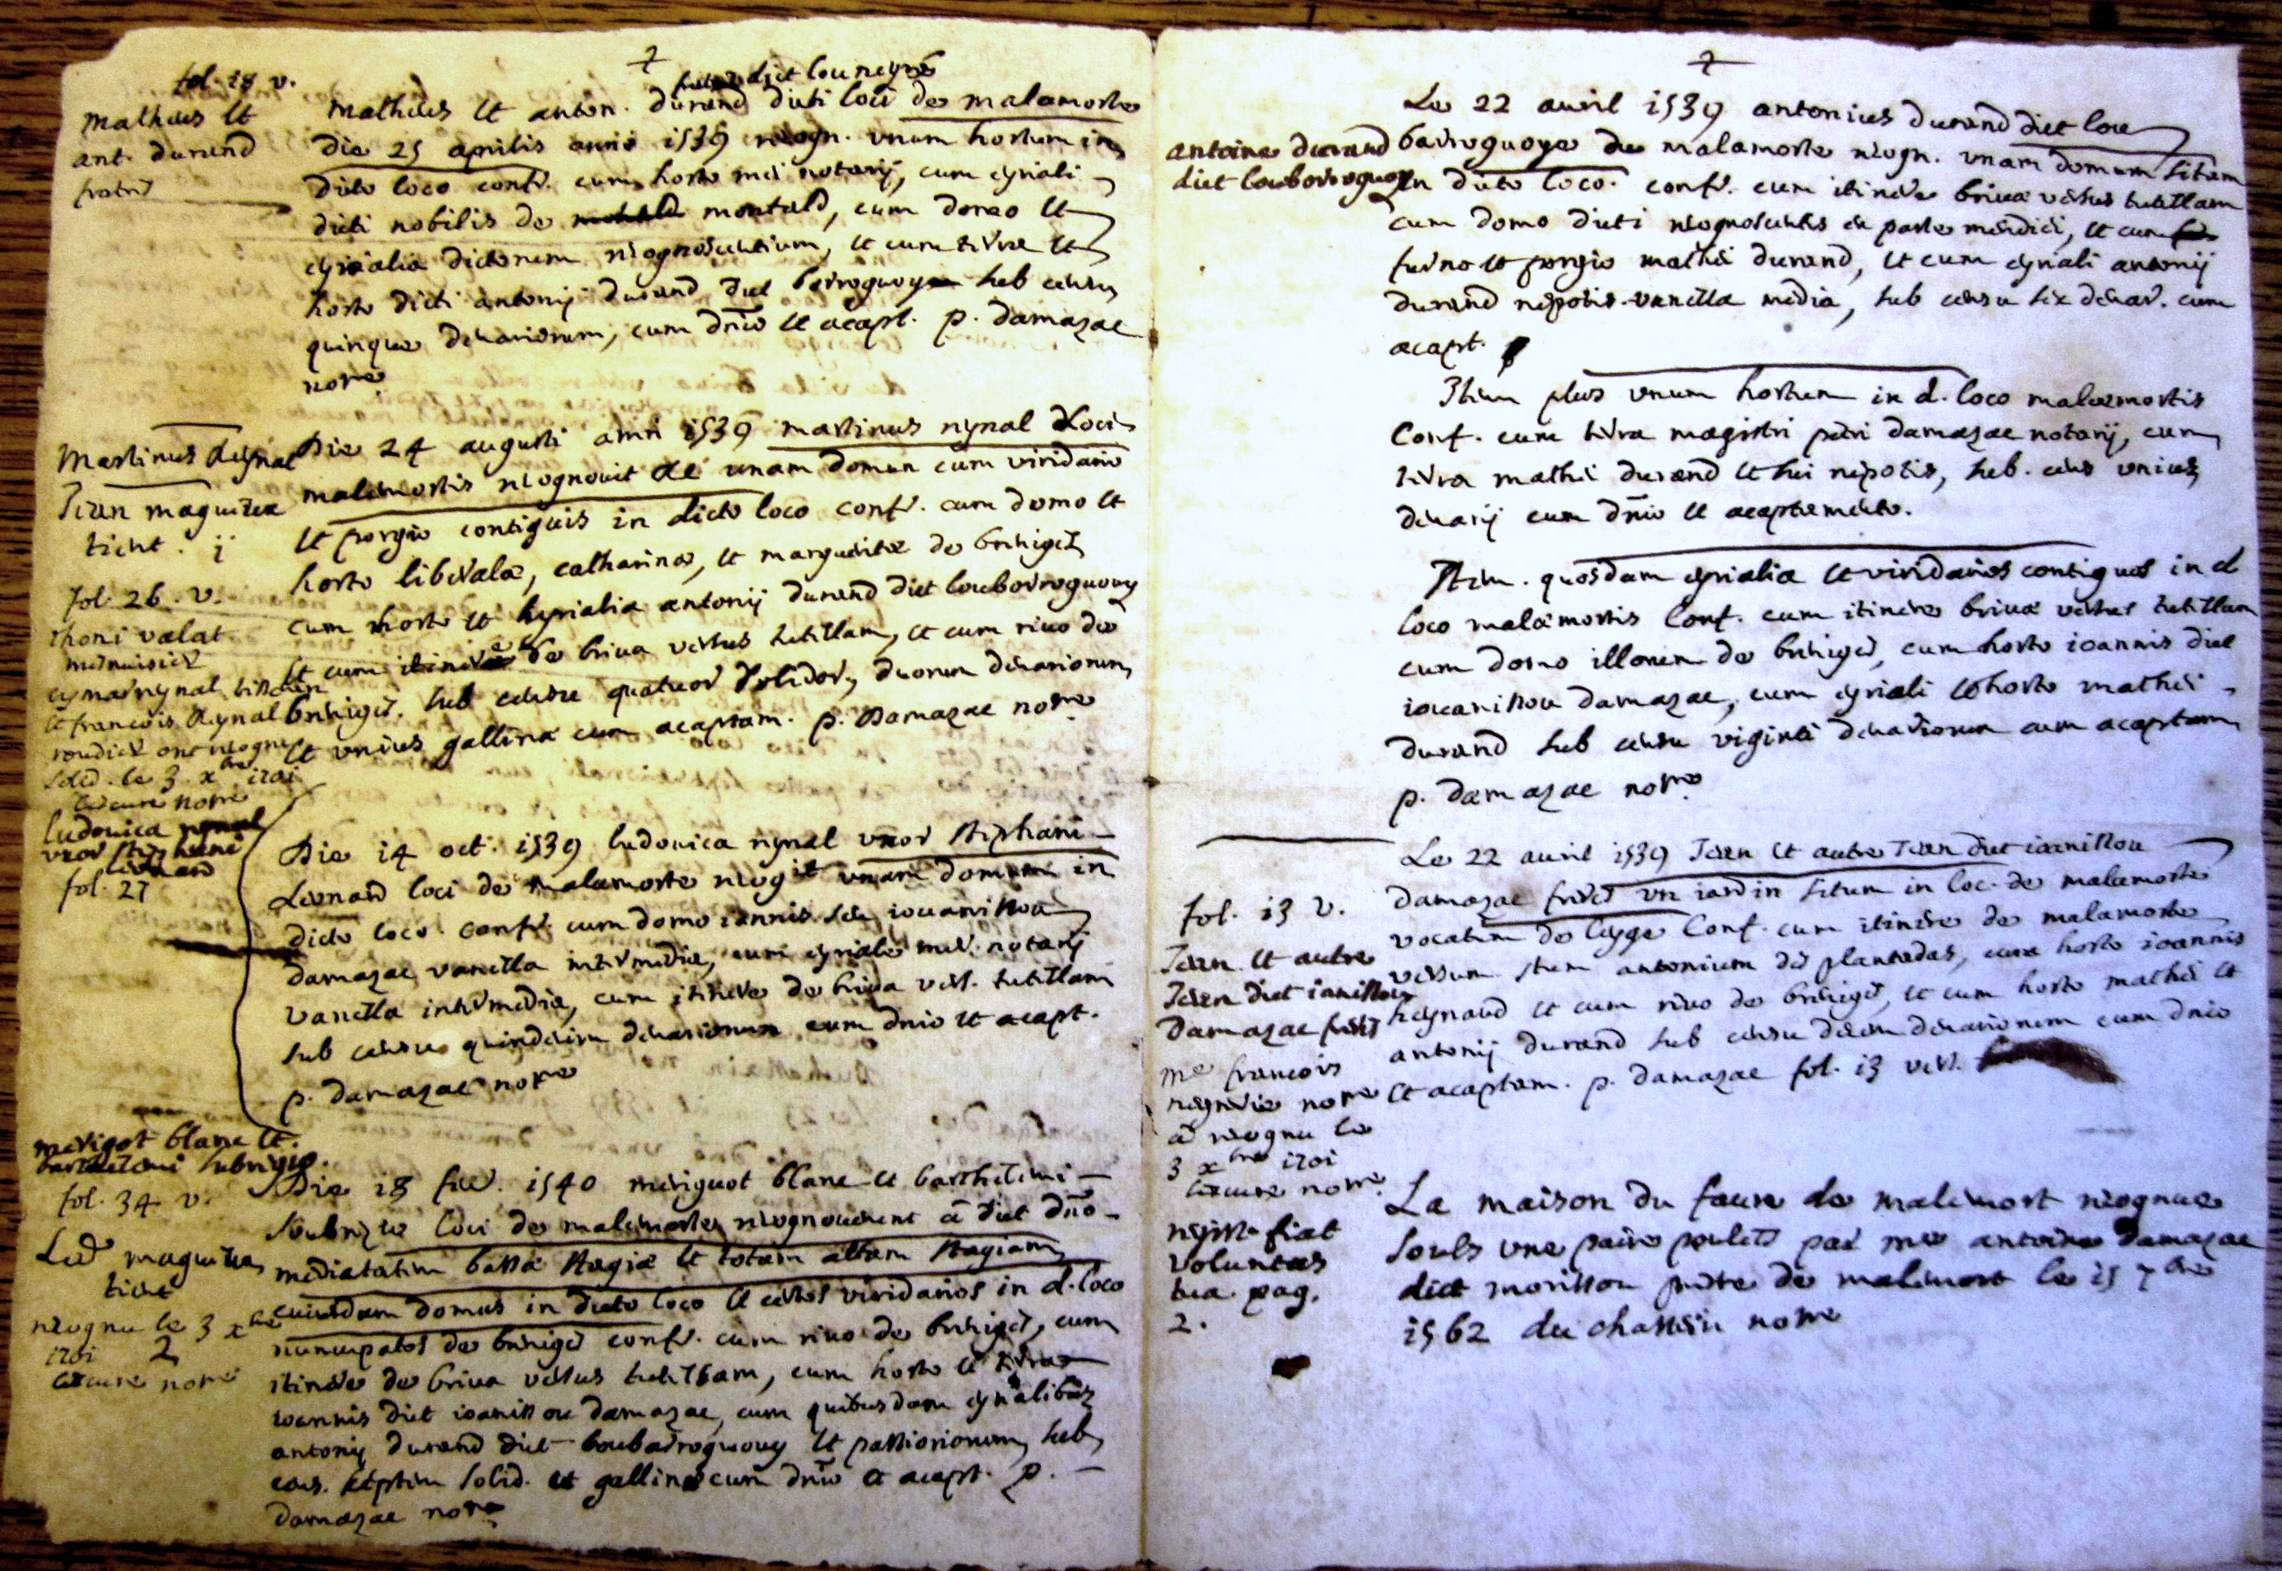 fol. 18 v.
mathæus et
ant. durand
fratres
mathæus et anton. durand dicti loci de malamorte
fratres dict lou neyre
die 25 aprilis anni 1539 recogn. unum hortum in
dicto loco conf. cum horto mei notarij, cum eyriali
dicti nobilis de montald, cum domo et
eyrialia dictorum recognoscentium, et cum terra et
horto dicti antonij durand dict barroguoy sub censu
quinque denariorum, cum dnio et acapt. p. damazac
nore
martinus reynal
Jean maguitea
tient. j
fol. 26. v.
thoni valat
menuisier
eymar reynal
et francois reynal
ont recognu
le 3 xbre 1701
nore
Die 24 augusti anni 1539 martinus reynal loci
malemortis recognovit unam domum cum viridario
et porgio contiguis in dicto loco conf. cum domo et
horto liberalæ, catharinæ, et margueritæ de briniges
cum horto et eyrialia antonij durand dict loubarroguouy
et cum itinere de briva versus tutellam, et cum rivo de
briniges. sub censu quatuor solidor, duorum denariorum
et unius gallinæ cum acaptam. p. Damazac nore
ludovica reynal
uxor stephani
leonard
fol. 27
Die 14 oct. 1539 ludovica reynal uxor stephani
Leonard loci de malamorte recogit unam domum in
dicto loco. conf. cum domo iannis seu iouanissou
damazac vanella intermedia, cum eyriale mei notarij
vanella intermedia, cum itinere de briva vers. tutellam
sub censu quindecim denariorum cum dnio et acapt.
p. damazac nore
merigot blanc et
barthelemi subregie.
fol. 34 v.
maguitea
tient
recognu le 3 xbre
1701 2
nore
Die 18 feu. 1540 meriguot blanc et barthelemi
soubregie loci de malemorte recognoverunt a dict dno
medietatem bassæ stagiæ et totam altam stagiam
cuiusdam domus in dicto loco et certos viridarios in d. loco
nuncupatos de briniges conf. cum rivo de briniges, cum
itinere de briva versus tutellam, cum horto et terra
ioannis dict ioanissou damazac, cum quibusdam eyrialibus
antonij durand dict loubarroguouy et parriorum, sub
cens. septem solid. et gallinæ cum dnio et acapt. p.
damazac nore
7
antoine durand
dict loubarroguoy
Le 22 auril 1539 antonius durand dict lou
barroguoye de malamorte recogn. unam domum sitam
in dicto loco. conf. cum itinere brivæ versus tutellam
cum domo dicti recognoscentis ex parte meridiei, et cum
furno et porgio mathei durand, et cum eyriali antonij
durand nepotis vanella media, sub censu sex denar. cum
acapt.
Item plus unum hortum in d. loco malæmortis
Conf. cum terra magistri petri damazac notarij, cum
terra mathei durand et sui nepotis, sub. cens unius
denarij cum dnio et acaptamento.
Item. quosdam eyrialia et viridarios contiguos in d
loco malæmortis Conf. cum itinere brivæ versus tutellam
cum domo illorum de briniges, cum horto ioannis dict
iouanissou damazac, cum eyriali et horto mathei
durand sub censu viginti denariorum cum acaptam
p. damazac nore
fol. 13 v.
Jean et autre
Jean dict ianissou
Damazac freres
me francois
nore
a recognu le
3 xbre 1701
nore
fiat
voluntas
tua pag.
2.
Le 22 auril 1539 Jean et autre Jean dict ioanissou
damazac freres un iardin situm in loc. de malemorte
vocatum de leyge Conf. cum itinere de malamorte
versum stum antonium de plantadas, cum horto ioannis
reynaud et cum rivo de briniges, et cum horto mathei et
antonij durand sub censu decem denariorum cum dnio
et acaptam. p. damazac fol. 13 vers.
La maison du faure de malemort recognue
soubs une paire poulets par me antoine Damazac
dict morissou prestre de malemort le 15 7bre
1562 du chassain nore